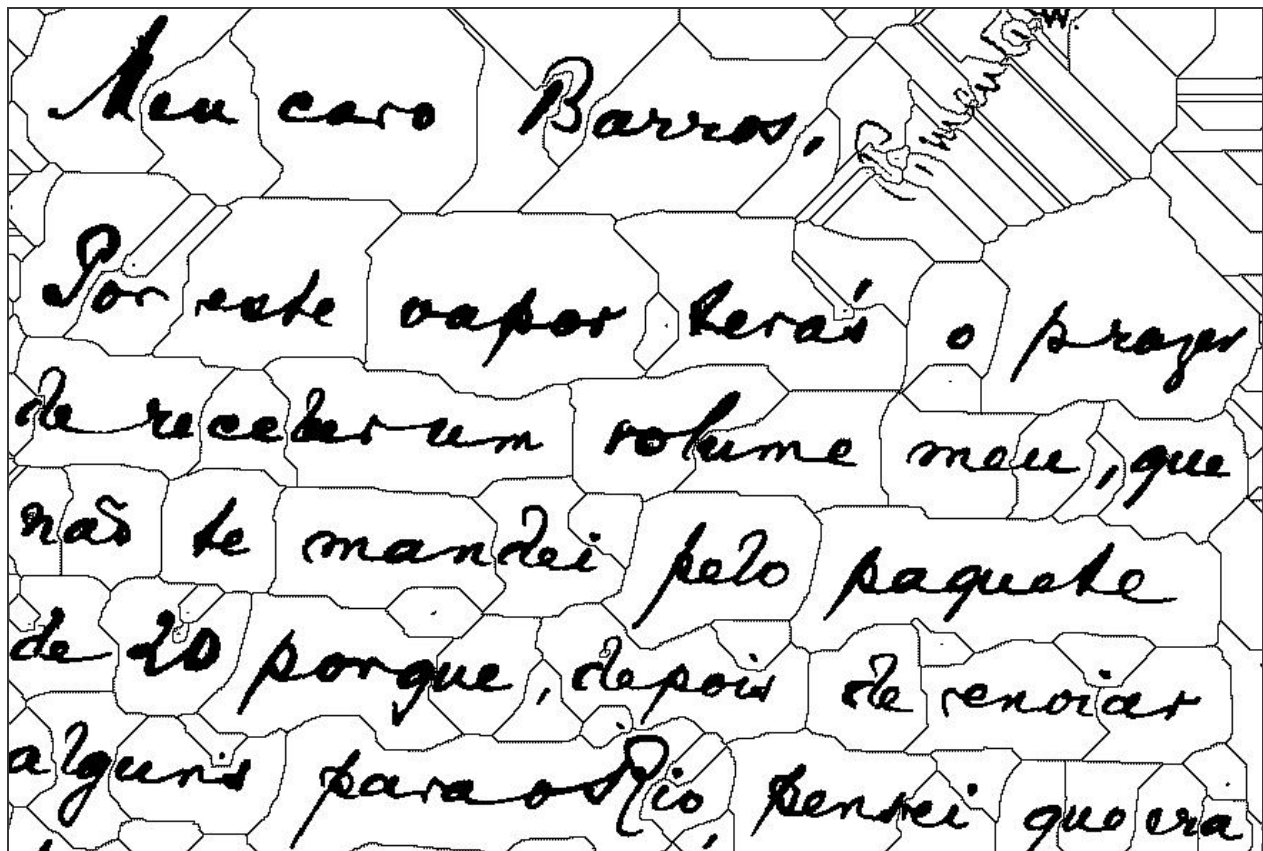 Meu caro Barros,
Por este vapor terás o prazer
de receber um volume meu, que
não te mandei pelo paquete
de 20 porque, depois de enviar
alguns para o Rio, pensei que era